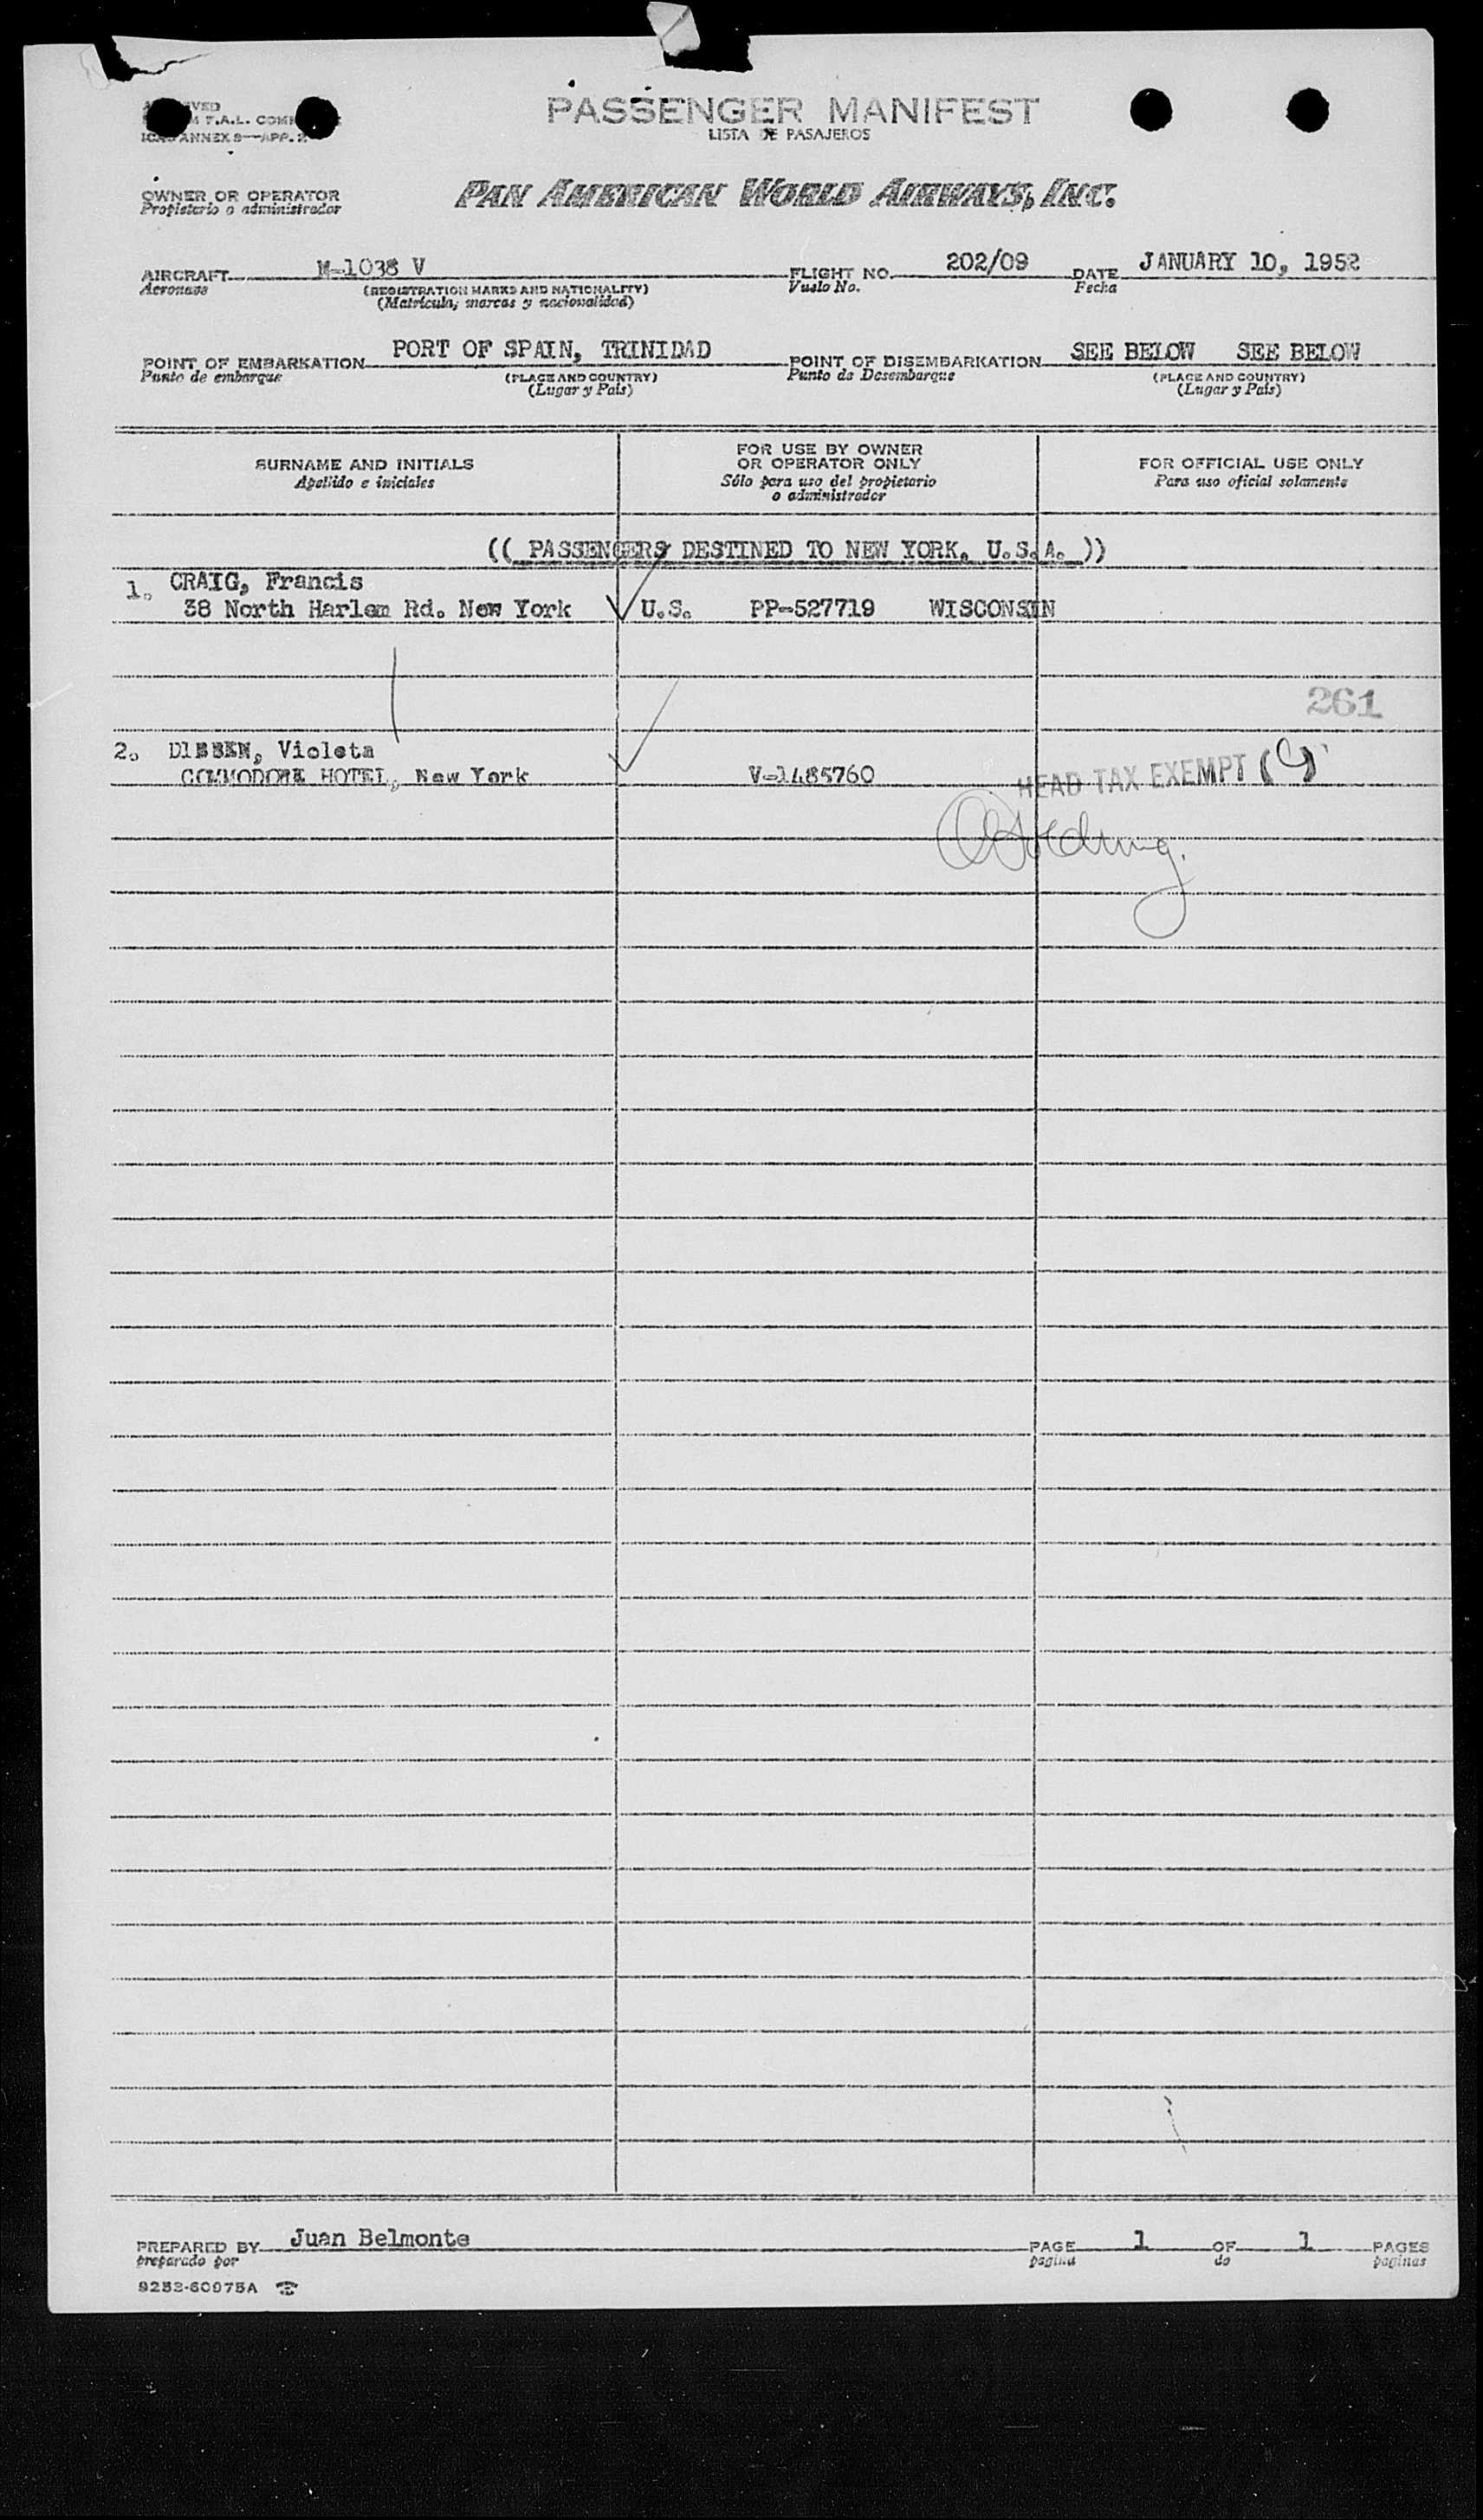 PASSENGER MANIFEST
LISTA DE PASAJEROS
F.A.L.
ANNEX 9—APP. 2
OWNER OR OPERATOR
Propietario o administrador
PAN AMERICAN WORLD AIRWAYS, INC.
AIRCRAFT N-1038 V FLIGHT NO. 202/09 DATE JANUARY 10, 1952
Aeronave (REGISTRATION MARKS AND NATIONALITY) Vuelo No. Fecha
(Matrícula, marcas y nacionalidad)
POINT OF EMBARKATION PORT OF SPAIN, TRINIDAD POINT OF DISEMBARKATION SEE BELOW SEE BELOW
Punto de embarque (PLACE AND COUNTRY) Punto de Desembarque (PLACE AND COUNTRY)
(Lugar y País) (Lugar y País)
SURNAME AND INITIALS FOR USE BY OWNER OR OPERATOR ONLY FOR OFFICIAL USE ONLY
Apellido e iniciales Sólo para uso del propietario o administrador Para uso oficial solamente
(( PASSENGERS DESTINED TO NEW YORK, U.S.A. ))
1. CRAIG, Francis
38 North Harlem Rd. New York U.S. PP-527719 WISCONSIN
261
2. DIBBEN, Violeta
COMMODORE HOTEL, New York V-1485760 HEAD TAX EXEMPT (9)
PREPARED BY Juan Belmonte PAGE 1 OF 1 PAGES
preparado por página de páginas
9252-60975A